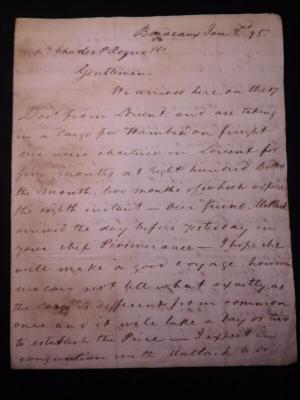 Bordeaux Jan. 2nd 95.
Charles P Rogers &Co
Gentlemen.
We arrived here on the 17.
Decr from Lorient and are taking
in a cargo for on freight
we were chartered in Lorient for
five months at eight hundred
the month, two months of which expire
the eighth instant – Our friend
arrived the day before yesterday in
your ship Perseverance – I hope she
will make a good voyage, however
we can not tell what exactly, as
the cargo is different from common
ones and it will take a day or two
to establish the Price – I expect in
conjunction with to do